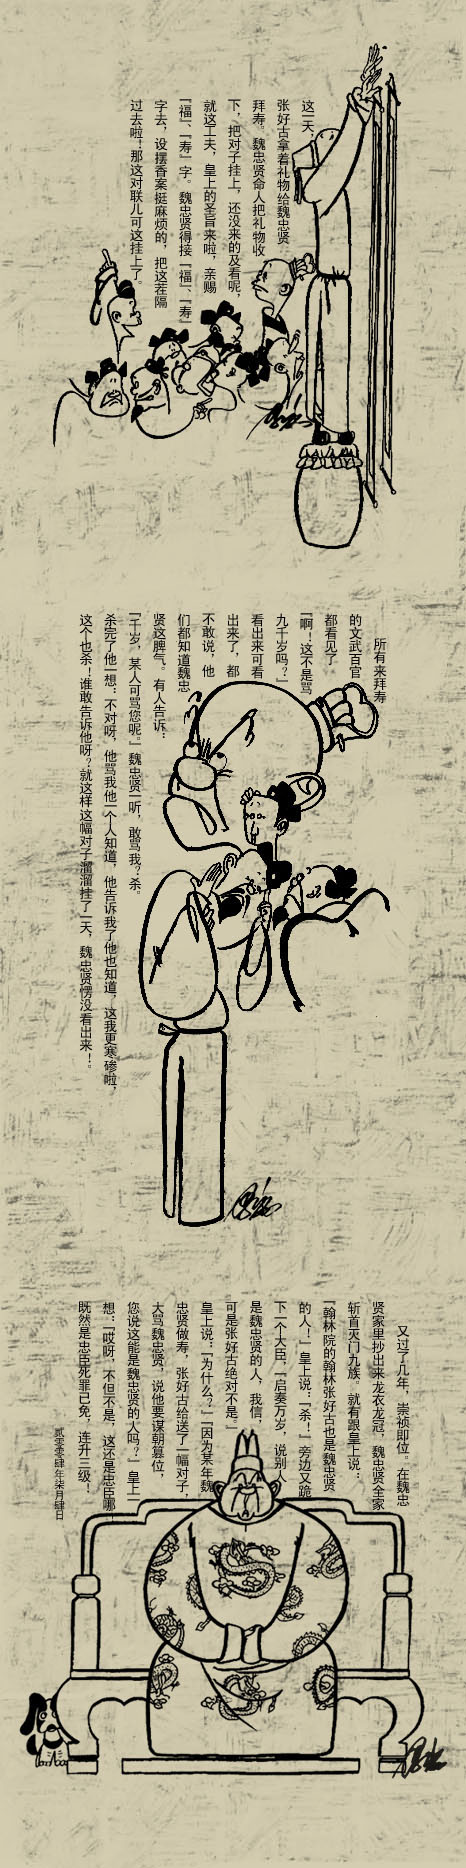 这一天，
张好古拿着礼物给魏忠贤
拜寿。魏忠贤命人把礼物收
下，把对子挂上，还没来的及看呢，
就这工夫，皇上的圣旨来啦，亲赐
「福」、「寿」字。魏忠贤得接「福」、「寿」
字去，设摆香案挺麻烦的，把这茬隔
过去啦！那这对联儿可这挂上了。
所有来拜寿
的文武百官
都看见了
「啊！这不是骂
九千岁吗？」
看出来可看
出来了，都
不敢说，他
们都知道魏忠
贤这脾气。有人告诉：
「千岁，某人可骂您呢。」魏忠贤一听，敢骂我？杀。
杀完了他一想：不对呀，他骂我他一个人知道，他告诉我了他也知道，这我更寒碜啦，
这个也杀！谁敢告诉他呀？就这样这幅对子溜溜挂了一天，魏忠贤愣没看出来！。
又过了几年，崇祯即位。在魏忠
贤家里抄出来龙衣龙冠，魏忠贤全家
斩首灭门九族。就有跟皇上说：
「翰林院的翰林张好古也是魏忠贤
的人！」皇上说：「杀！」旁边又跪
下一个大臣，「启奏万岁，说别人
是魏忠贤的人，我信，
可是张好古绝对不是。」
皇上说：「为什么？」「因为某年魏
忠贤做寿，张好古给送了一幅对子，
大骂魏忠贤，说他要谋朝篡位，
您说这能是魏忠贤的人吗？」皇上一
想：「哎呀，不但不是，这还是忠臣哪
既然是忠臣死罪已免，连升三级！
贰零零肆年柒月肆日